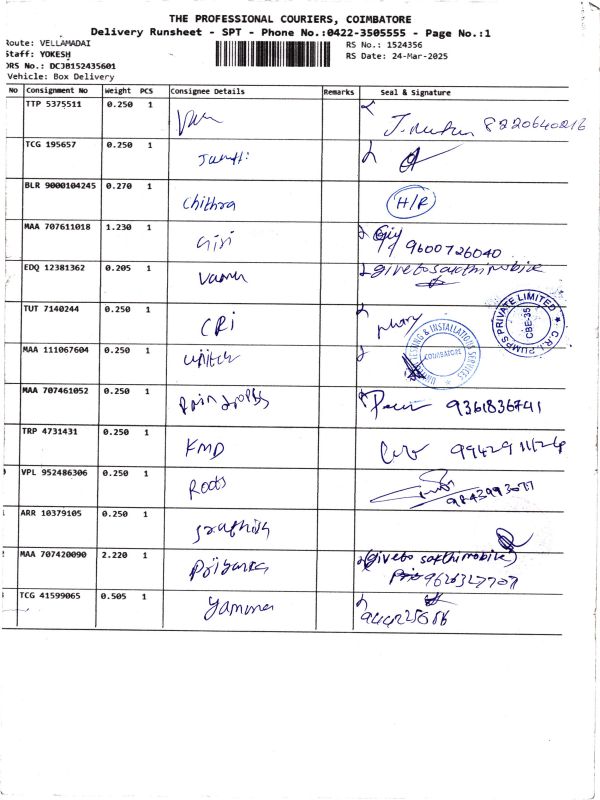 THE PROFESSIONAL COURIERS, COIMBATORE
Delivery Runsheet - SPT - Phone No.:0422-3505555 - Page No.:1
Route: VELLAMADAI
Staff: YOKESH
DRS No.: DCJB152435601
Vehicle: Box Delivery
RS No.: 1524356
RS Date: 24-Mar-2025
No Consignment No Weight PCS Consignee Details Remarks Seal & Signature
TTP 5375511 0.250 1 8220640216
TCG 195657 0.250 1
BLR 9000104245 0.270 1 Chithra H/R
MAA 707611018 1.230 1 Giri 9600726040
EDQ 12381362 0.205 1 give to sakthi mobile
TUT 7140244 0.250 1 CRi
C.R.I. PUMPS PRIVATE LIMITED CBE-35
MAA 111067604 0.250 1
TESTING & INSTALLATIONS SERVICES COIMBATORE
MAA 707461052 0.250 1 9361836741
TRP 4731431 0.250 1 KMD
VPL 952486306 0.250 1 Roots
ARR 10379105 0.250 1
MAA 707420090 2.220 1 Priyanka (give to sakthi mobile)
9626327707
TCG 41599065 0.505 1 Yamuna